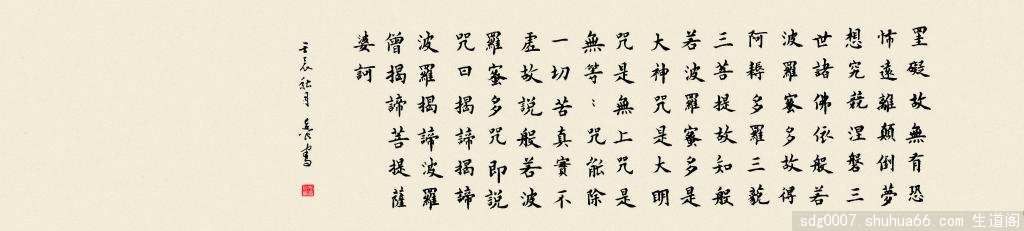 罣礙故無有恐
怖遠離顛倒夢
想究竟涅磐三
世諸佛依般若
波羅蜜多故得
阿耨多羅三藐
三菩提故知般
若波羅蜜多是
大神咒是大明
咒是無上咒是
無等〻咒能除
一切苦真實不
虛故説般若波
羅蜜多咒即説
咒曰揭諦揭諦
波羅揭諦波羅
僧揭諦菩提薩
婆訶
壬辰秋月
書
sdg0007.shuhua66.com 生道阁